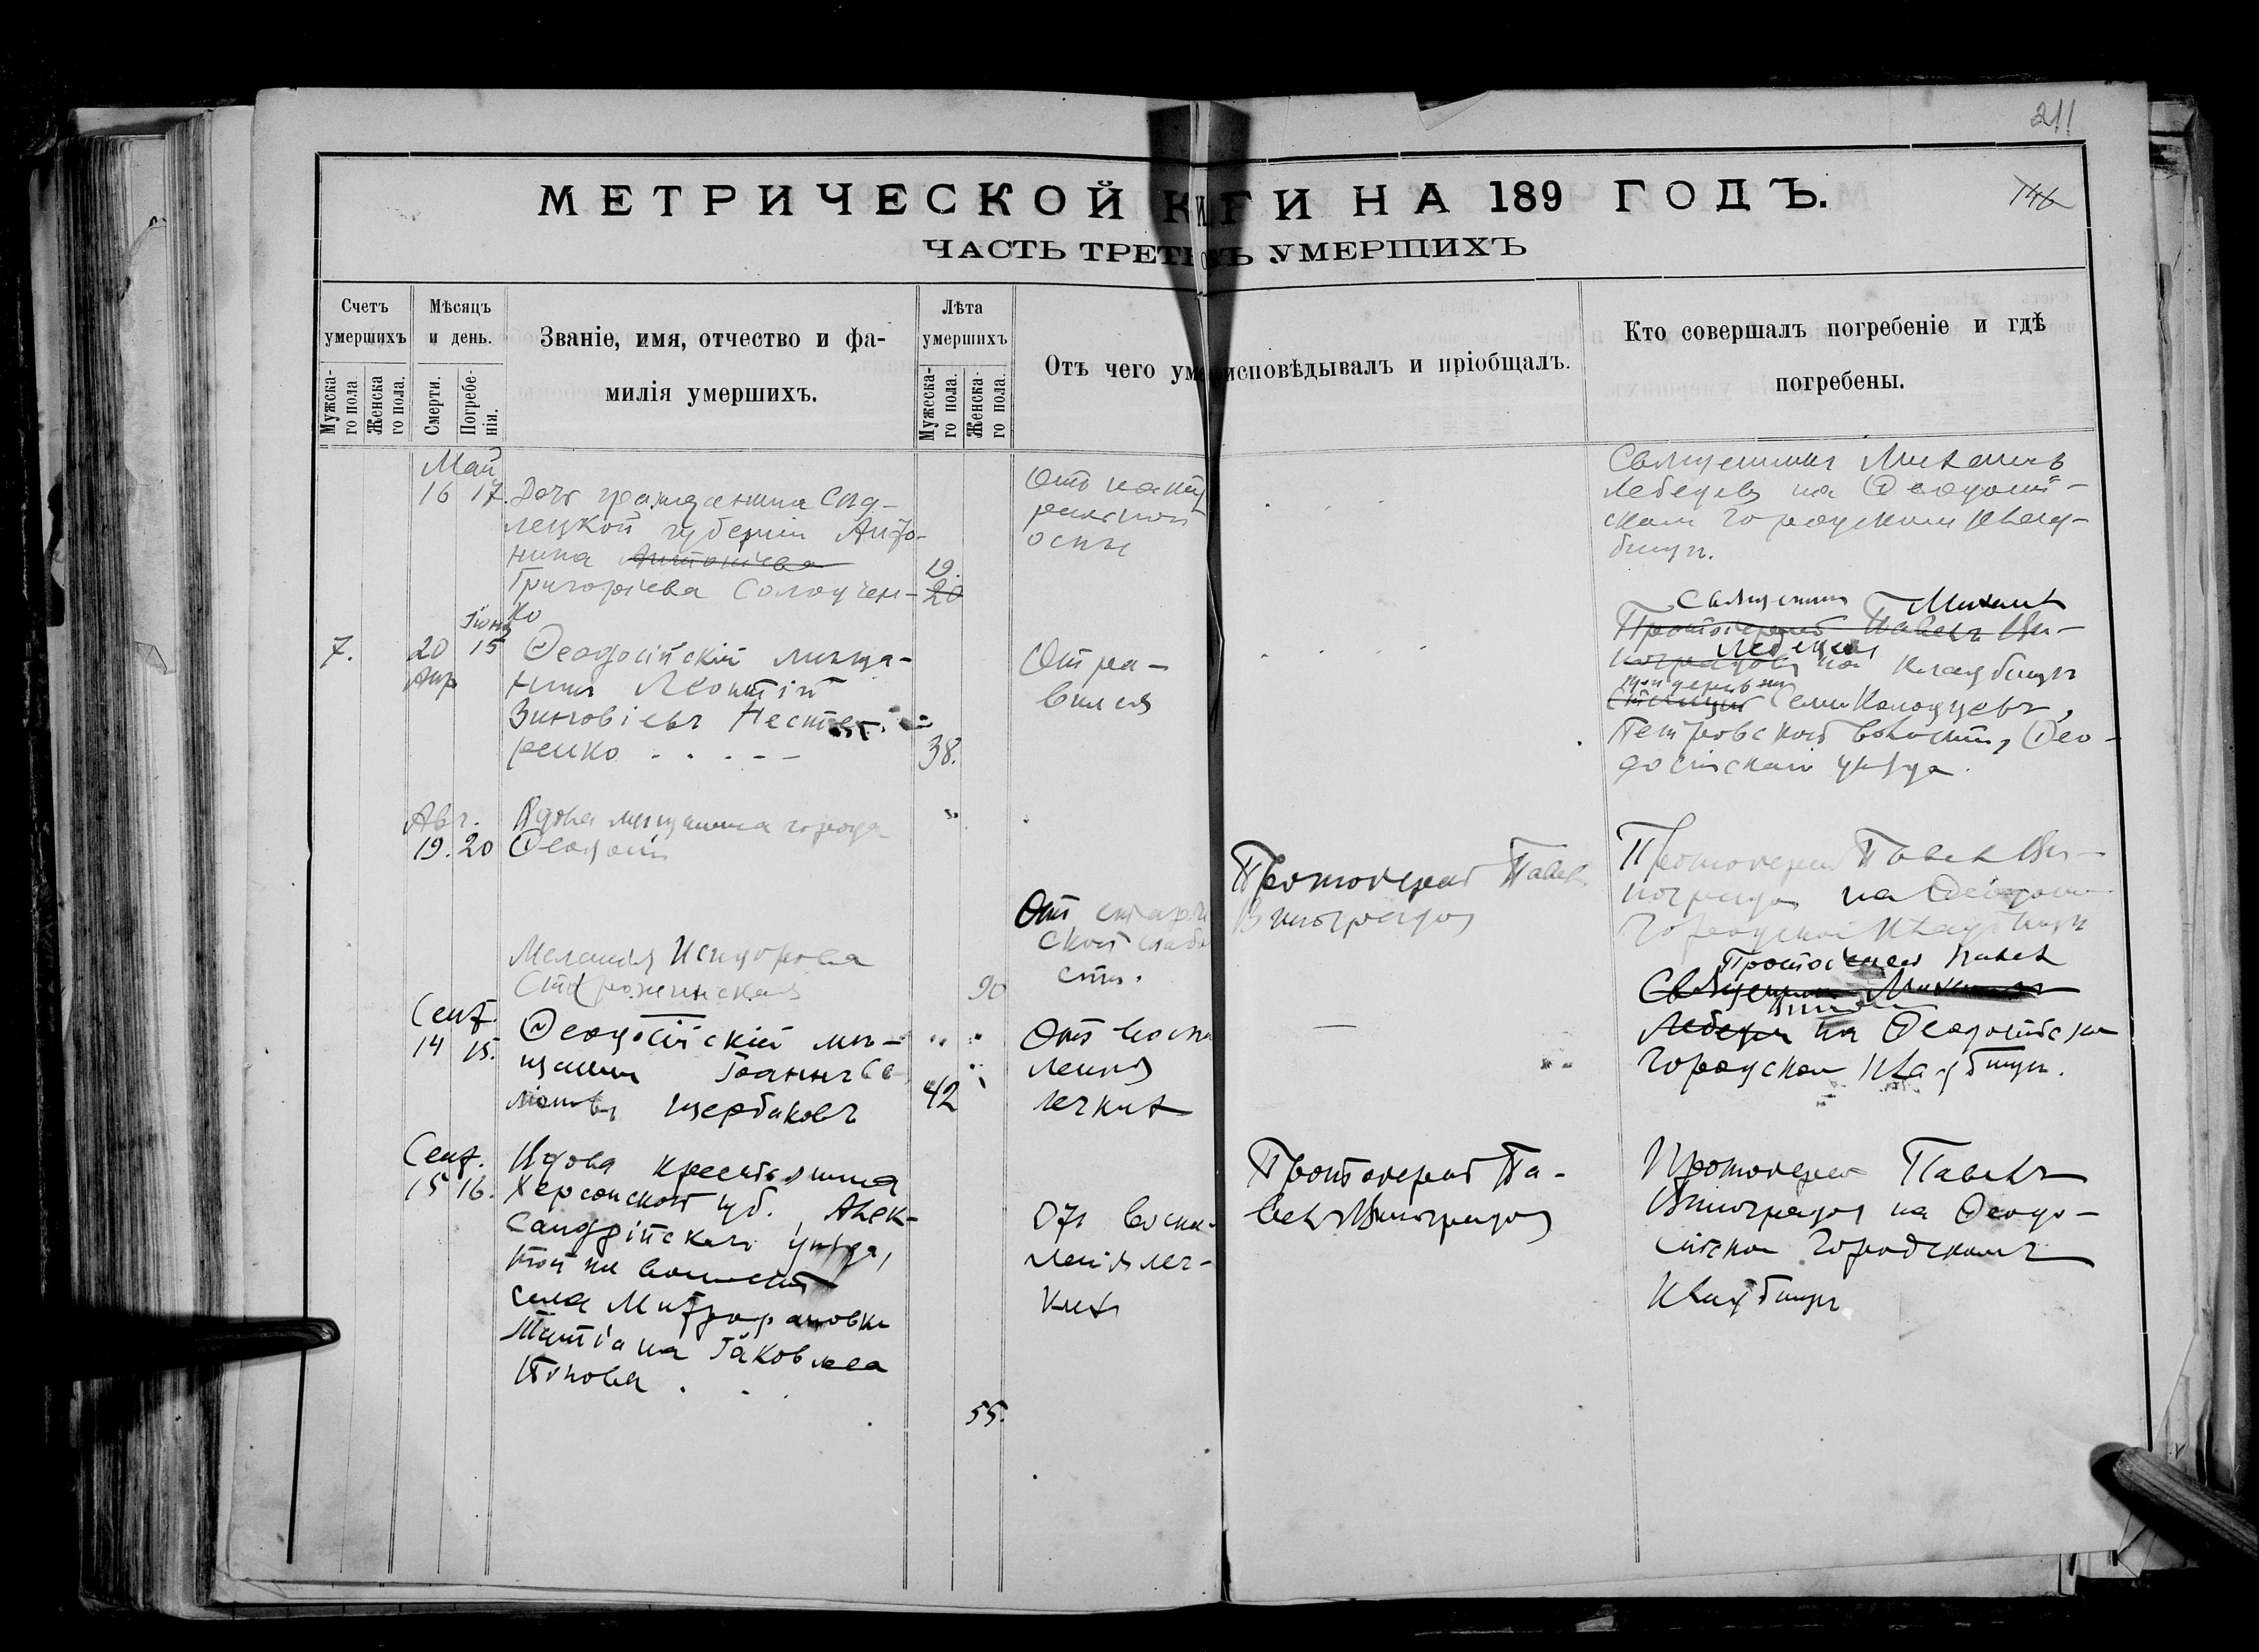 211
МЕТРИЧЕСКОЙ К И ГИ НА 189 ГОДЪ.
146
ЧАСТЬ ТРЕТІ О Ъ УМЕРШИХЪ
Счетъ умершихъ
Мужска-го пола.
Женска го пола.
Мѣсяцъ и день.
Смерти.
Погребе-нія.
Званіе, имя, отчество и фа-
милія умершихъ.
Лѣта умершихъ
Мужеска-го пола.
Женска-го пола.
Отъ чего уме исповѣдывалъ и пріобщалъ.
Кто совершалъ погребеніе и гдѣ
погребены.
Май
16 17.
Дочь гражданина Сѣд-
лецкой губерніи Анто-
нина Антоніева
Григоріева Солодчен-
ко
19.
20
Отъ нату
ральной
оспы
Священникъ Михаилъ
Лебедевъ на Ѳеодосій-
скомъ городскомъ клад-
бищѣ.
7.
20
Апр
Іюня
15
Ѳеодосійскій мѣща-
нинъ Леонтій
Зиновіевъ Несте-
ренко
38.
Отра-
вился
Священникъ Михаилъ
Протоіерей Павелъ Ви-
Лебедевъ
ноградовъ на кладбищѣ
при деревни
Станціи Семи Колодцевъ,
Петровской волости, Ѳео-
досійскаго уѣзда.
Авг.
19. 20
Вдова мѣщанина города
Ѳеодосіи
Меланія Исидорова
Сторожинская
90
Отъ старче
ской слабо
сти.
Протоіерей Павелъ
Виноградовъ
Протоіерей Павелъ Ви-
ноградовъ на Ѳеодосій
городскомъ кладбищѣ
Сент.
14 15.
Ѳеодосійскій мѣ-
щанинъ Іоаннъ
Щербаковъ
42
Отъ воспа
ленія
легкихъ
Протоіерей Павелъ
Священникъ Михаилъ
Лебедевъ на Ѳеодосійском
городском кладбищѣ.
Сент.
15 16.
Вдова крестьянина
Херсонской губ. Алек-
сандрійскаго уѣзда,
той же волости
села Митрофановки
Татіана Іаковлева
55.
Отъ воспа-
ленія лег-
кихъ
Протоіерей Па-
велъ Виноградовъ
Протоіерей Павелъ
Виноградовъ на Ѳеодо-
сійском Городскомъ
кладбищѣ